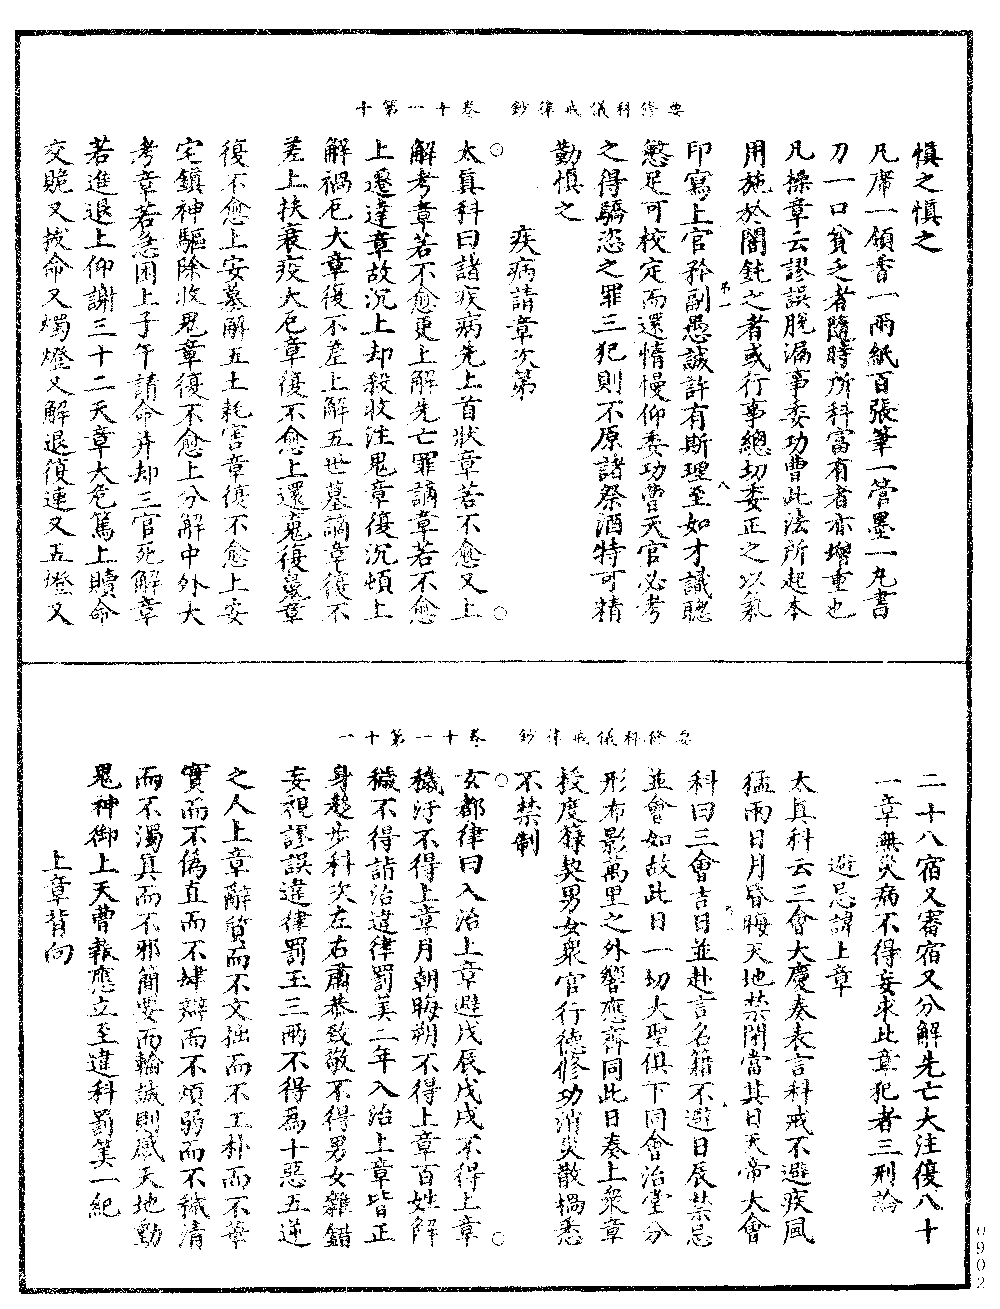 要修科儀戒律鈔　卷十一第十
慎之慎之
凡席一領香一兩紙百張筆一管墨一丸書
刀一口貧乏者隨時所科富有者亦增重也
凡操章云謬誤脫漏事委功曹此法所起本
用施於闇鈍之者或行事總切委正之以氣
印寫上官所副愚誠許有斯理至如才識聰
慜足可校定而還惰慢仰委功曹天官必考
之得驕恣之罪三犯則不原諸祭酒特可精
勤慎之
疾病請章次第
太真科曰諸疾病先上首狀章若不愈又上
解考章若不愈更上解先亡罪謫章若不愈
上遷達章故沉上却殺收注鬼章復沉頓上
解禍厄大章復不差上解五世墓謫章復不
差上扶衰疫大厄章復不愈上還魂復魄章
復不愈上安墓解五土耗害章復不愈上安
宅鎮神驅除收鬼章復不愈上分解中外大
考章若急困上子午請命并却三官死解章
若進退上仰謝三十二天章大危篤上贖命
交賍又拔命又燭燈又解退復連又五燈又
要修科儀戒律鈔　卷十一第十一
二十八宿又審宿又分解先亡大注復八十
一章無災病不得妄求此章犯者三刑論
避忌諱上章
太真科云三會大慶奏表言科戒不避疾風
猛雨日月昏晦天地禁閉當其日天帝大會
科曰三會吉日並赴言名籍不避日辰禁忌
並會如故此日一切大聖俱下同會治堂分
形布影萬里之外響應齊同此日奏上衆章
授度籙契男女衆官行德修功消災散禍悉
不禁制
玄都律曰入治上章避戊辰戊戌不得上章
穢汙不得上章月朝晦朔不得上章百姓解
穢不得詣治違律罰筭二年入治上章皆正
身趍步科次左右肅恭致敬不得男女雜錯
妄視謬誤違律罰玉三兩不得為十惡五逆
之人上章辭質而不文拙而不工朴而不華
實而不偽直而不肆辯而不煩弱而不穢清
而不濁真而不邪簡要而輸誠則感天地動
鬼神御上天曹報應立至違科罰筭一紀
上章背向
0902